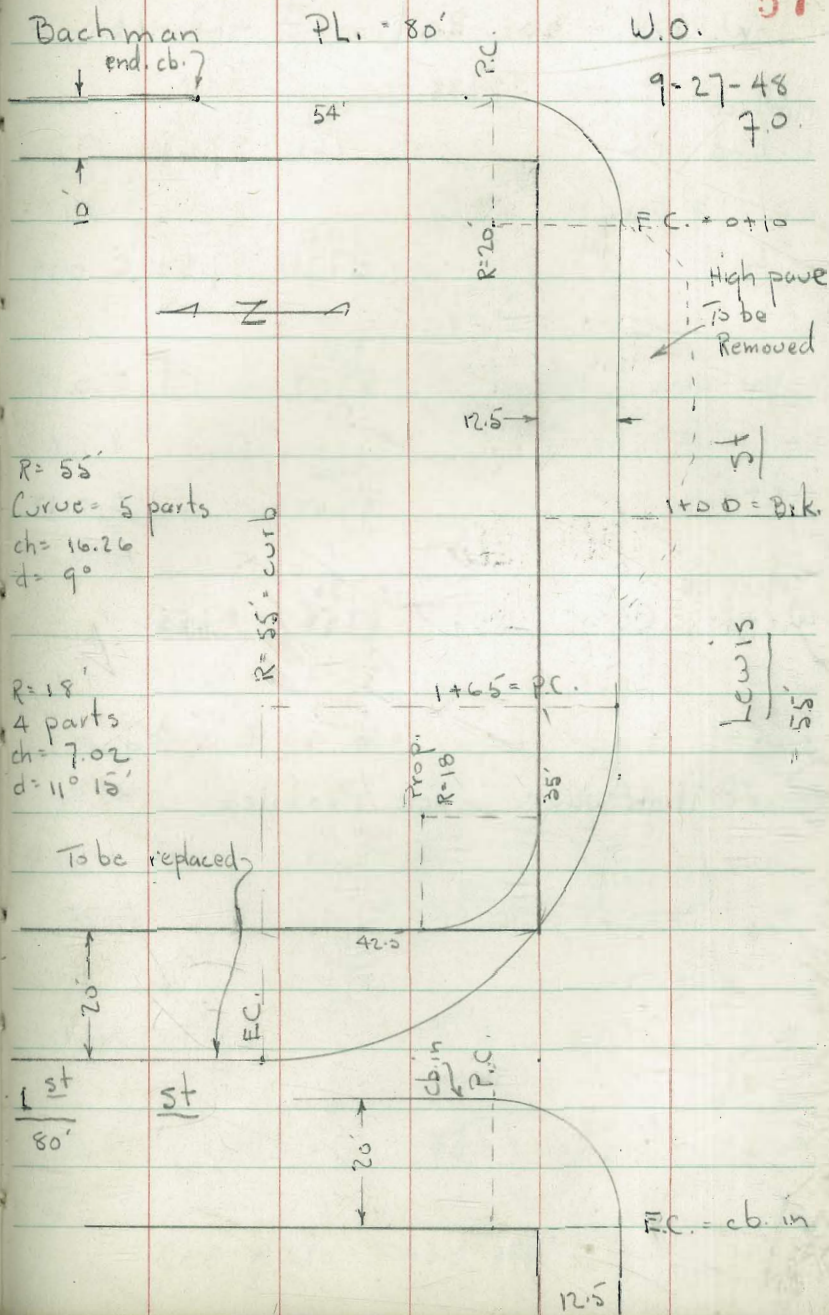 57
Bachman PL. = 80' W.O.
end. cb.
P.C.
9-27-48
7.0.
54'
10'
R=20'
E.C. = 0+10
High pave
To be
Removed
N
12.5
St
R= 55'
Curve= 5 parts
ch= 16.26
d= 9°
1+00 = Brk.
R= 55' = curb
Lewis
= 55'
R= 18'
4 parts
ch= 7.02
d= 11° 15'
1+65 = P.C.
Prop.
R=18
35'
To be replaced
42.5
20'
E.C.
1st St
80'
cb. in
P.C.
20'
E.C. = cb. in
12.5